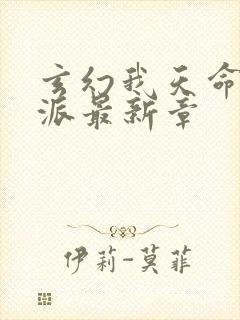 玄幻我天命
派最新章
伊莉-莫菲